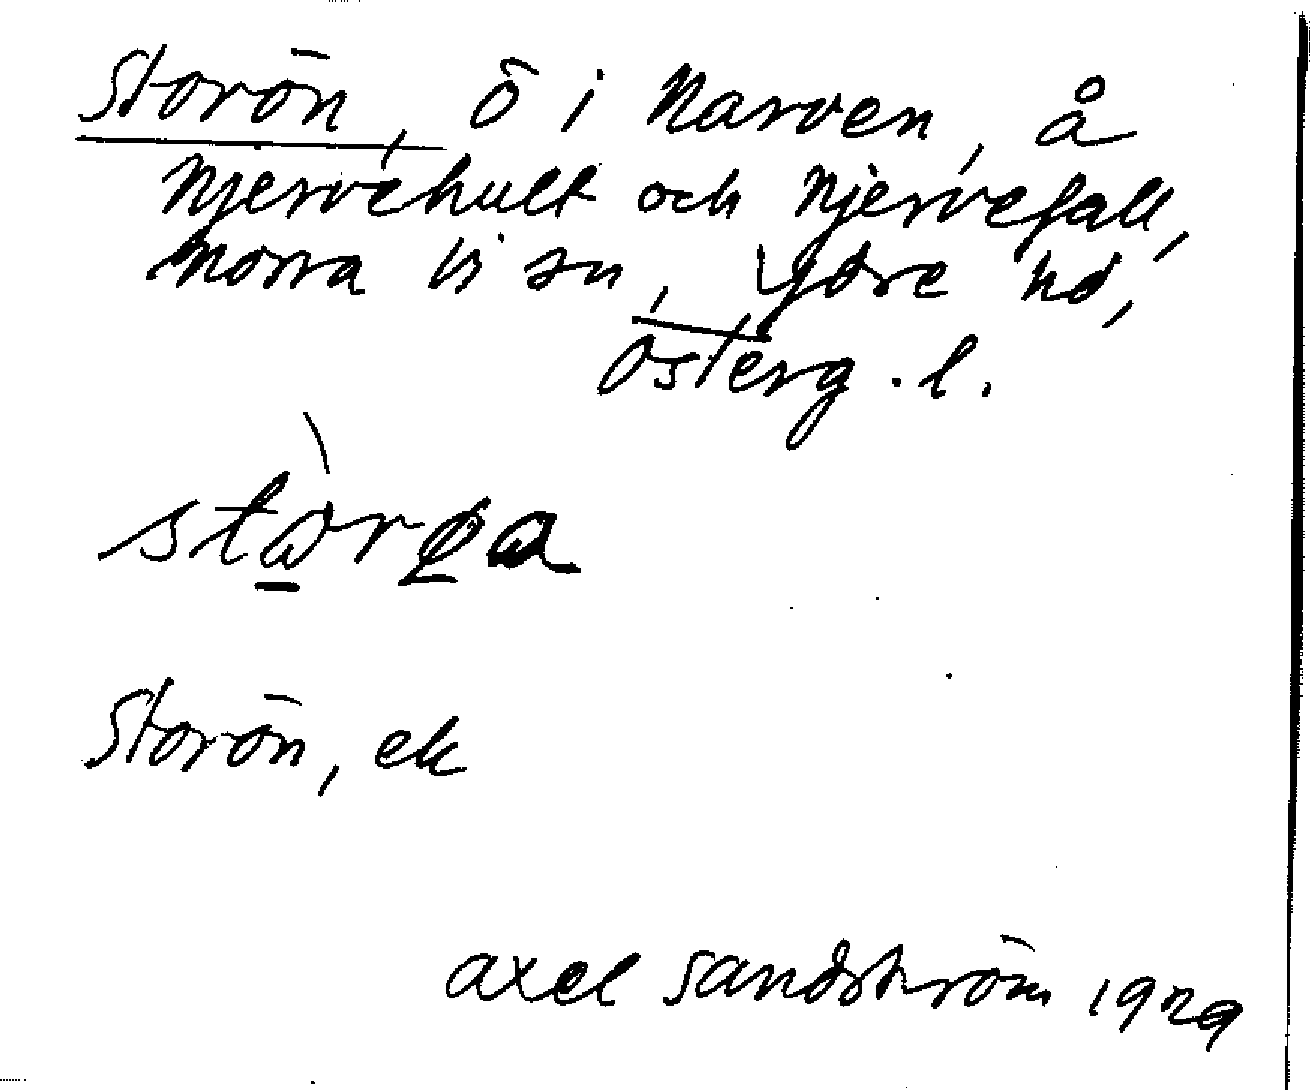 Storön, ö i Narven, å
Njervehult och Njervefall,
Norra Vi sn, Ydre hd,
Österg. l.
Storön, ek
Axel Sandström 1929